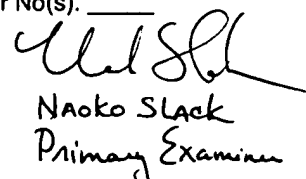 r No(s). ____
NAOKO SLACK
Primary Examiner